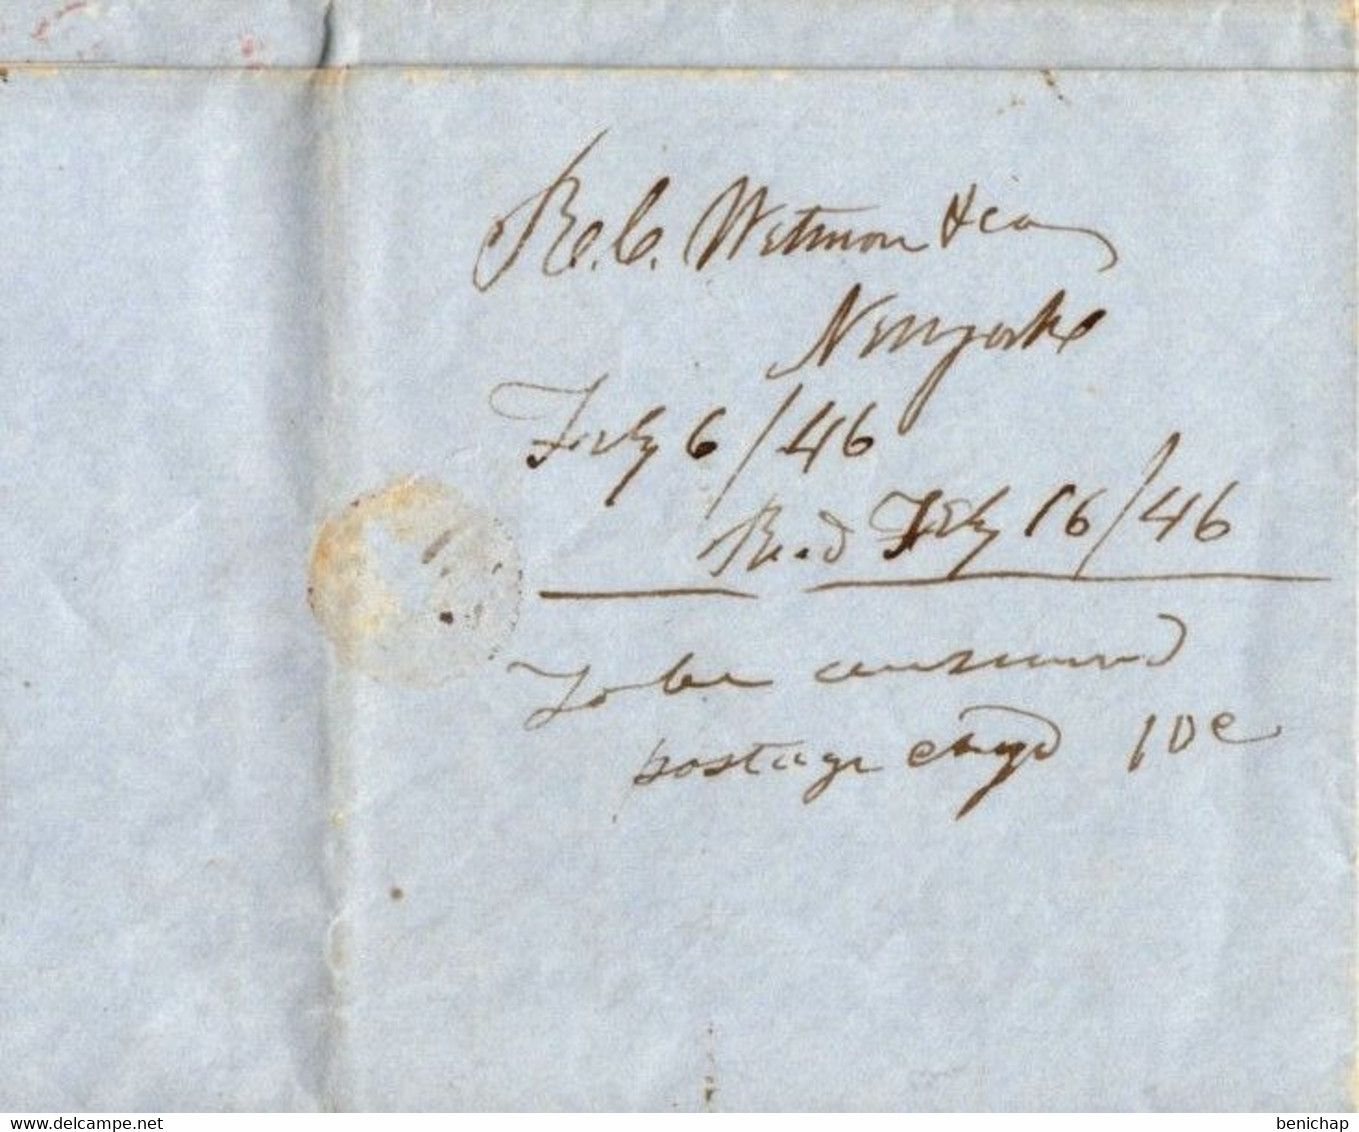 R. C. Wetmore & Co
New York
Feby 6/46
Recd Feby 16/46
To be answered
postage chgd 10c
www.delcampe.net
benichap